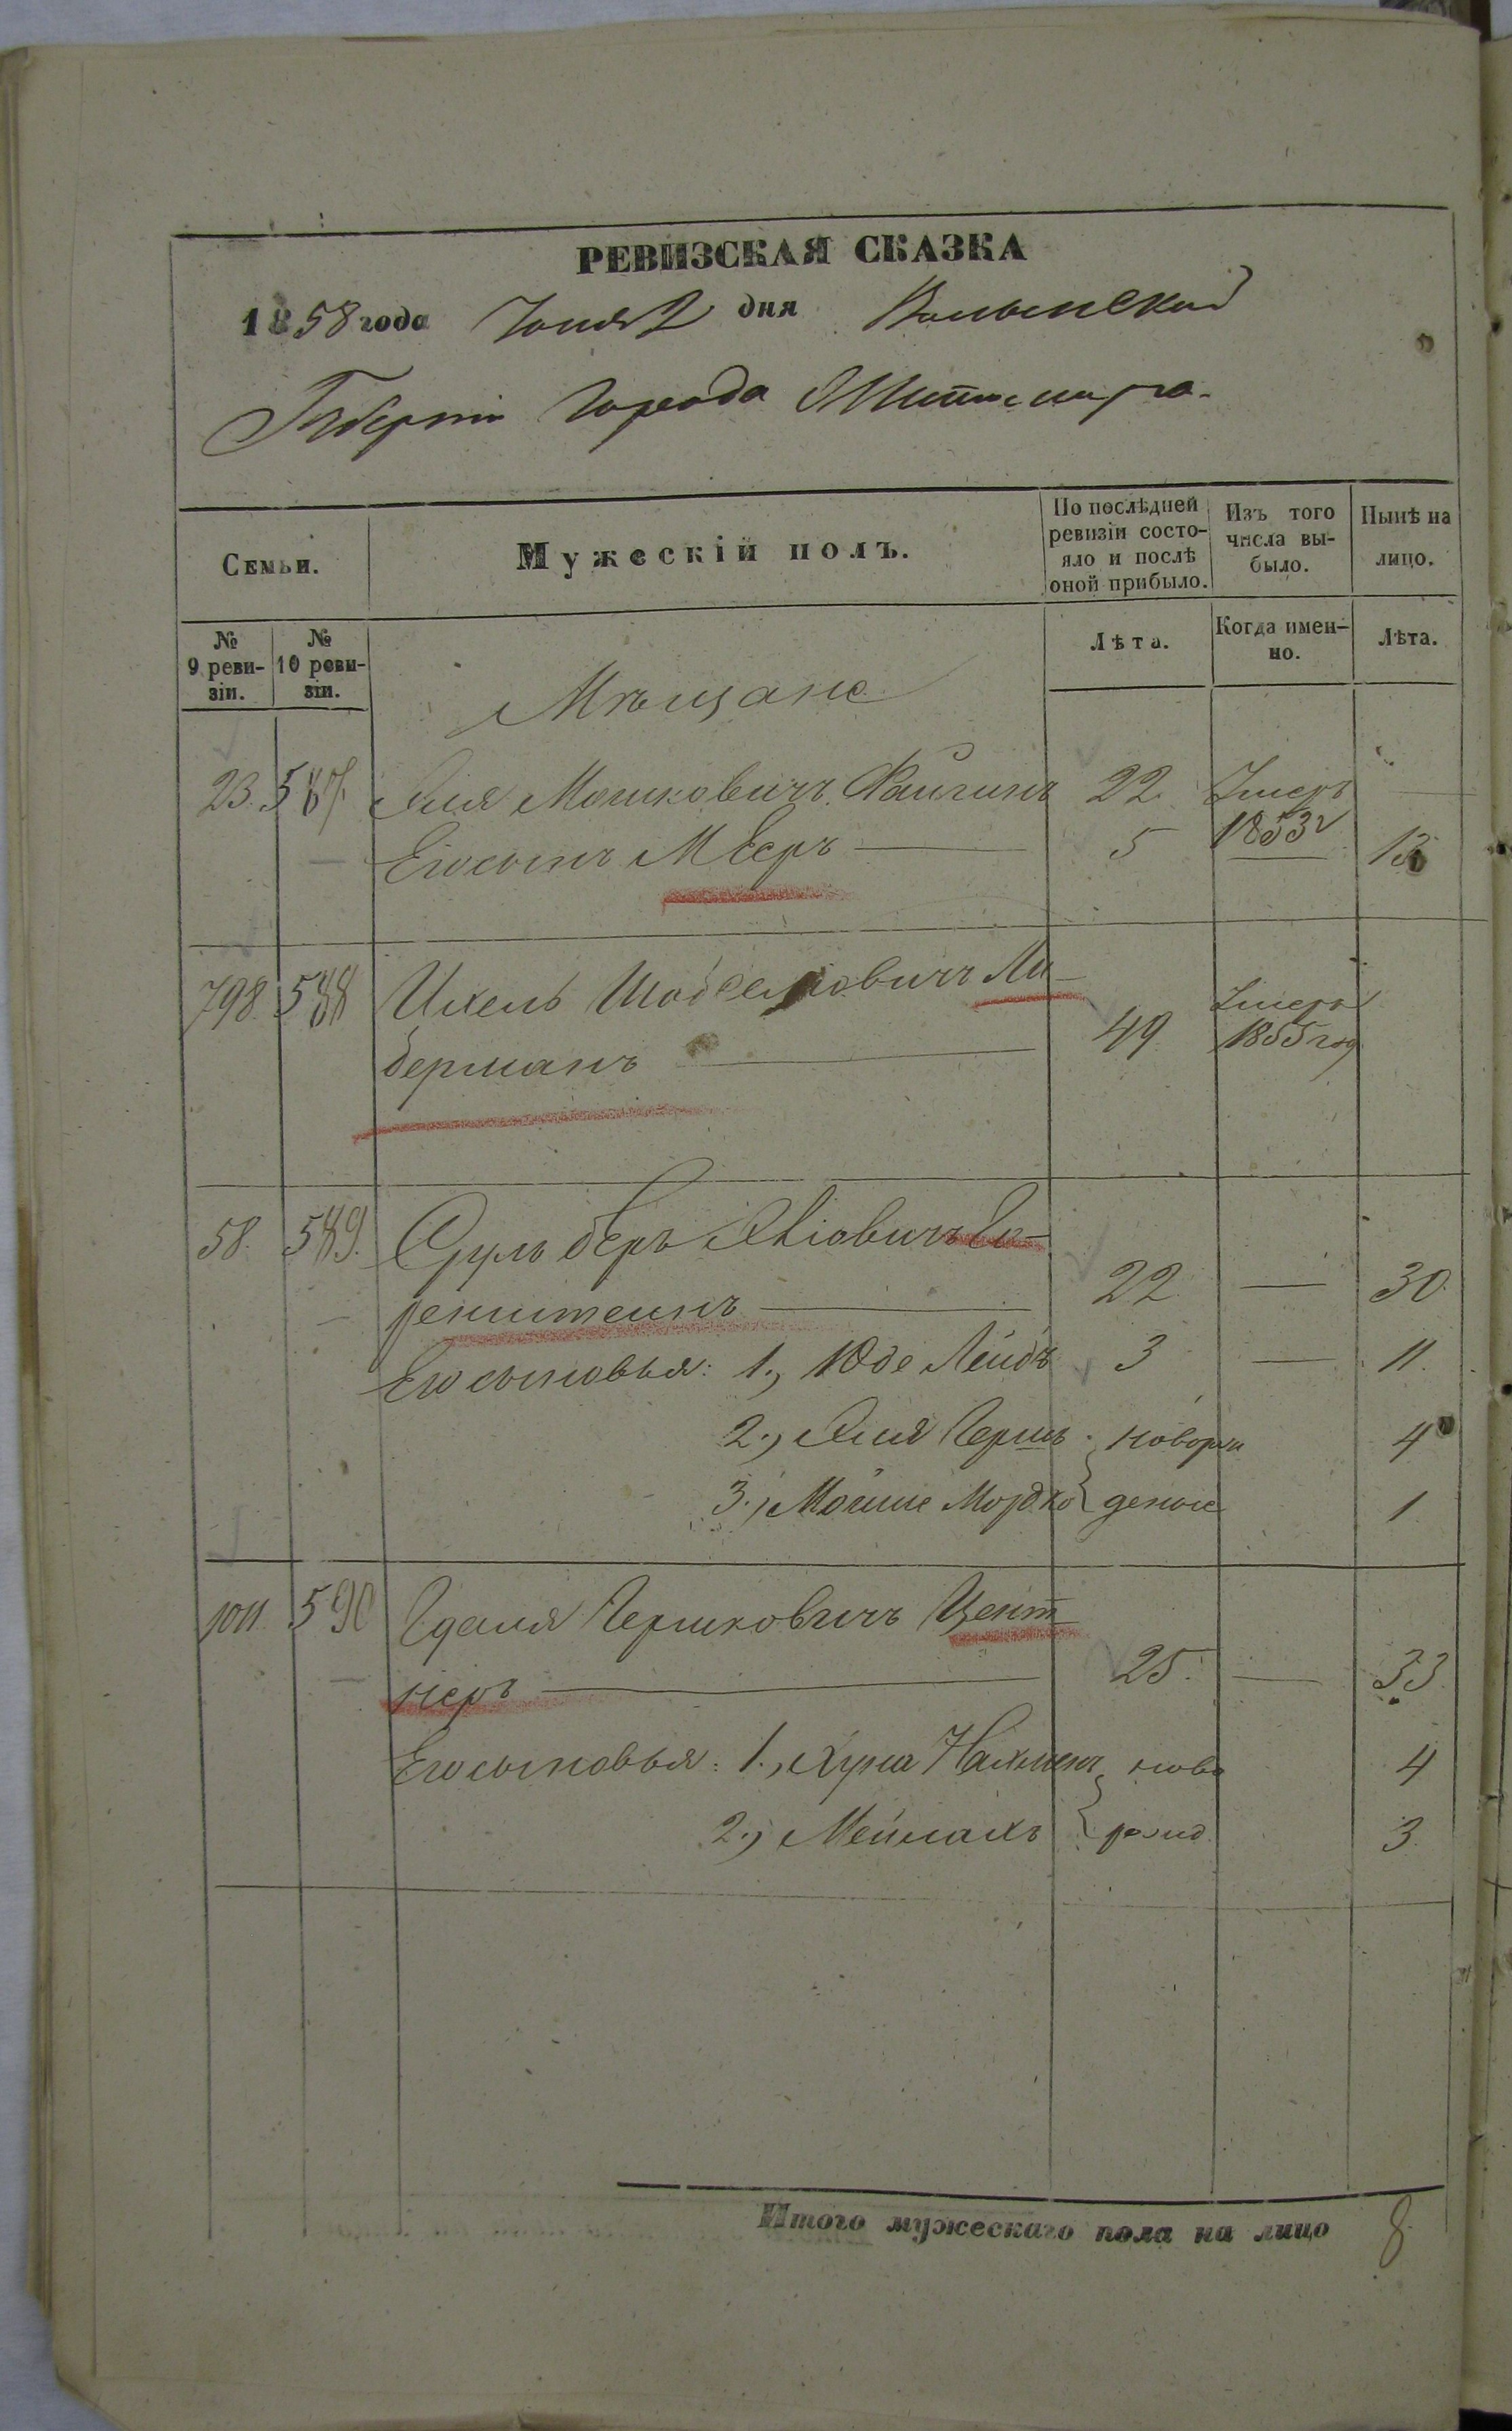 РЕВИЗСКАЯ СКАЗКА
1858 года Іюня 2 дня Волынской
Губерніи Города Житомира.
Семьи.
Мужескій полъ.
По послѣдней ревизіи состо-
яло и послѣ оной прибыло.
Изъ того числа вы-
было.
Нынѣ на лицо.
№ 9 реви-
зіи.
№ 10 реви-
зіи.
Лѣта.
Когда имен-
но.
Лѣта.
Мѣщане
23. 587. Эля Мошковичъ Файгинъ 22. Умеръ
Его сынъ Мееръ 5 1853 г 13
798 588 Ихель Шо Ли-
берманъ 49 Умеръ 1855 год
58. 589. Сруль беръ
ренштеинъ 22 — 30.
Его сыновья: 1., Юде Лейбъ 3 — 11.
2., Эля Гершъ новорж 4
3., Мошке Мордко деные 1.
1011. 590 Гдаля Гершковичъ Цент
неръ 25. — 33.
Его сыновья: 1., Хуна Нахманъ ново 4
2., Мейлахъ рожд. 3.
Итого мужескаго пола на лицо 8